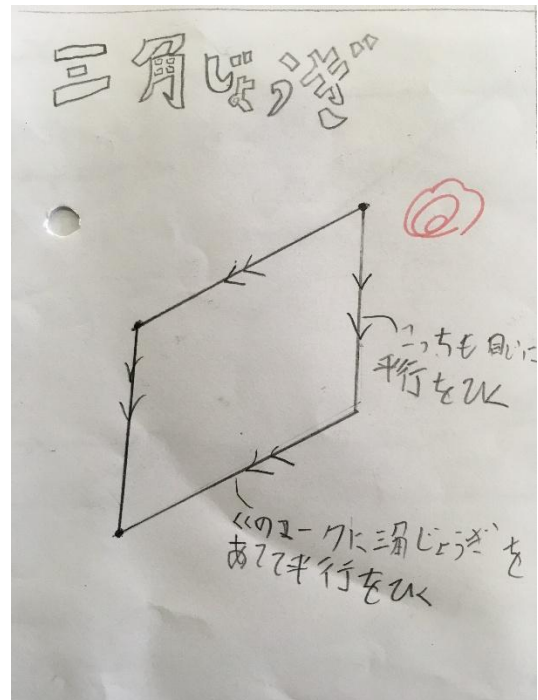 三角じょうぎ
こっちも同じに
平行をひく
<<のマークに三角じょうぎを
あてて平行をひく